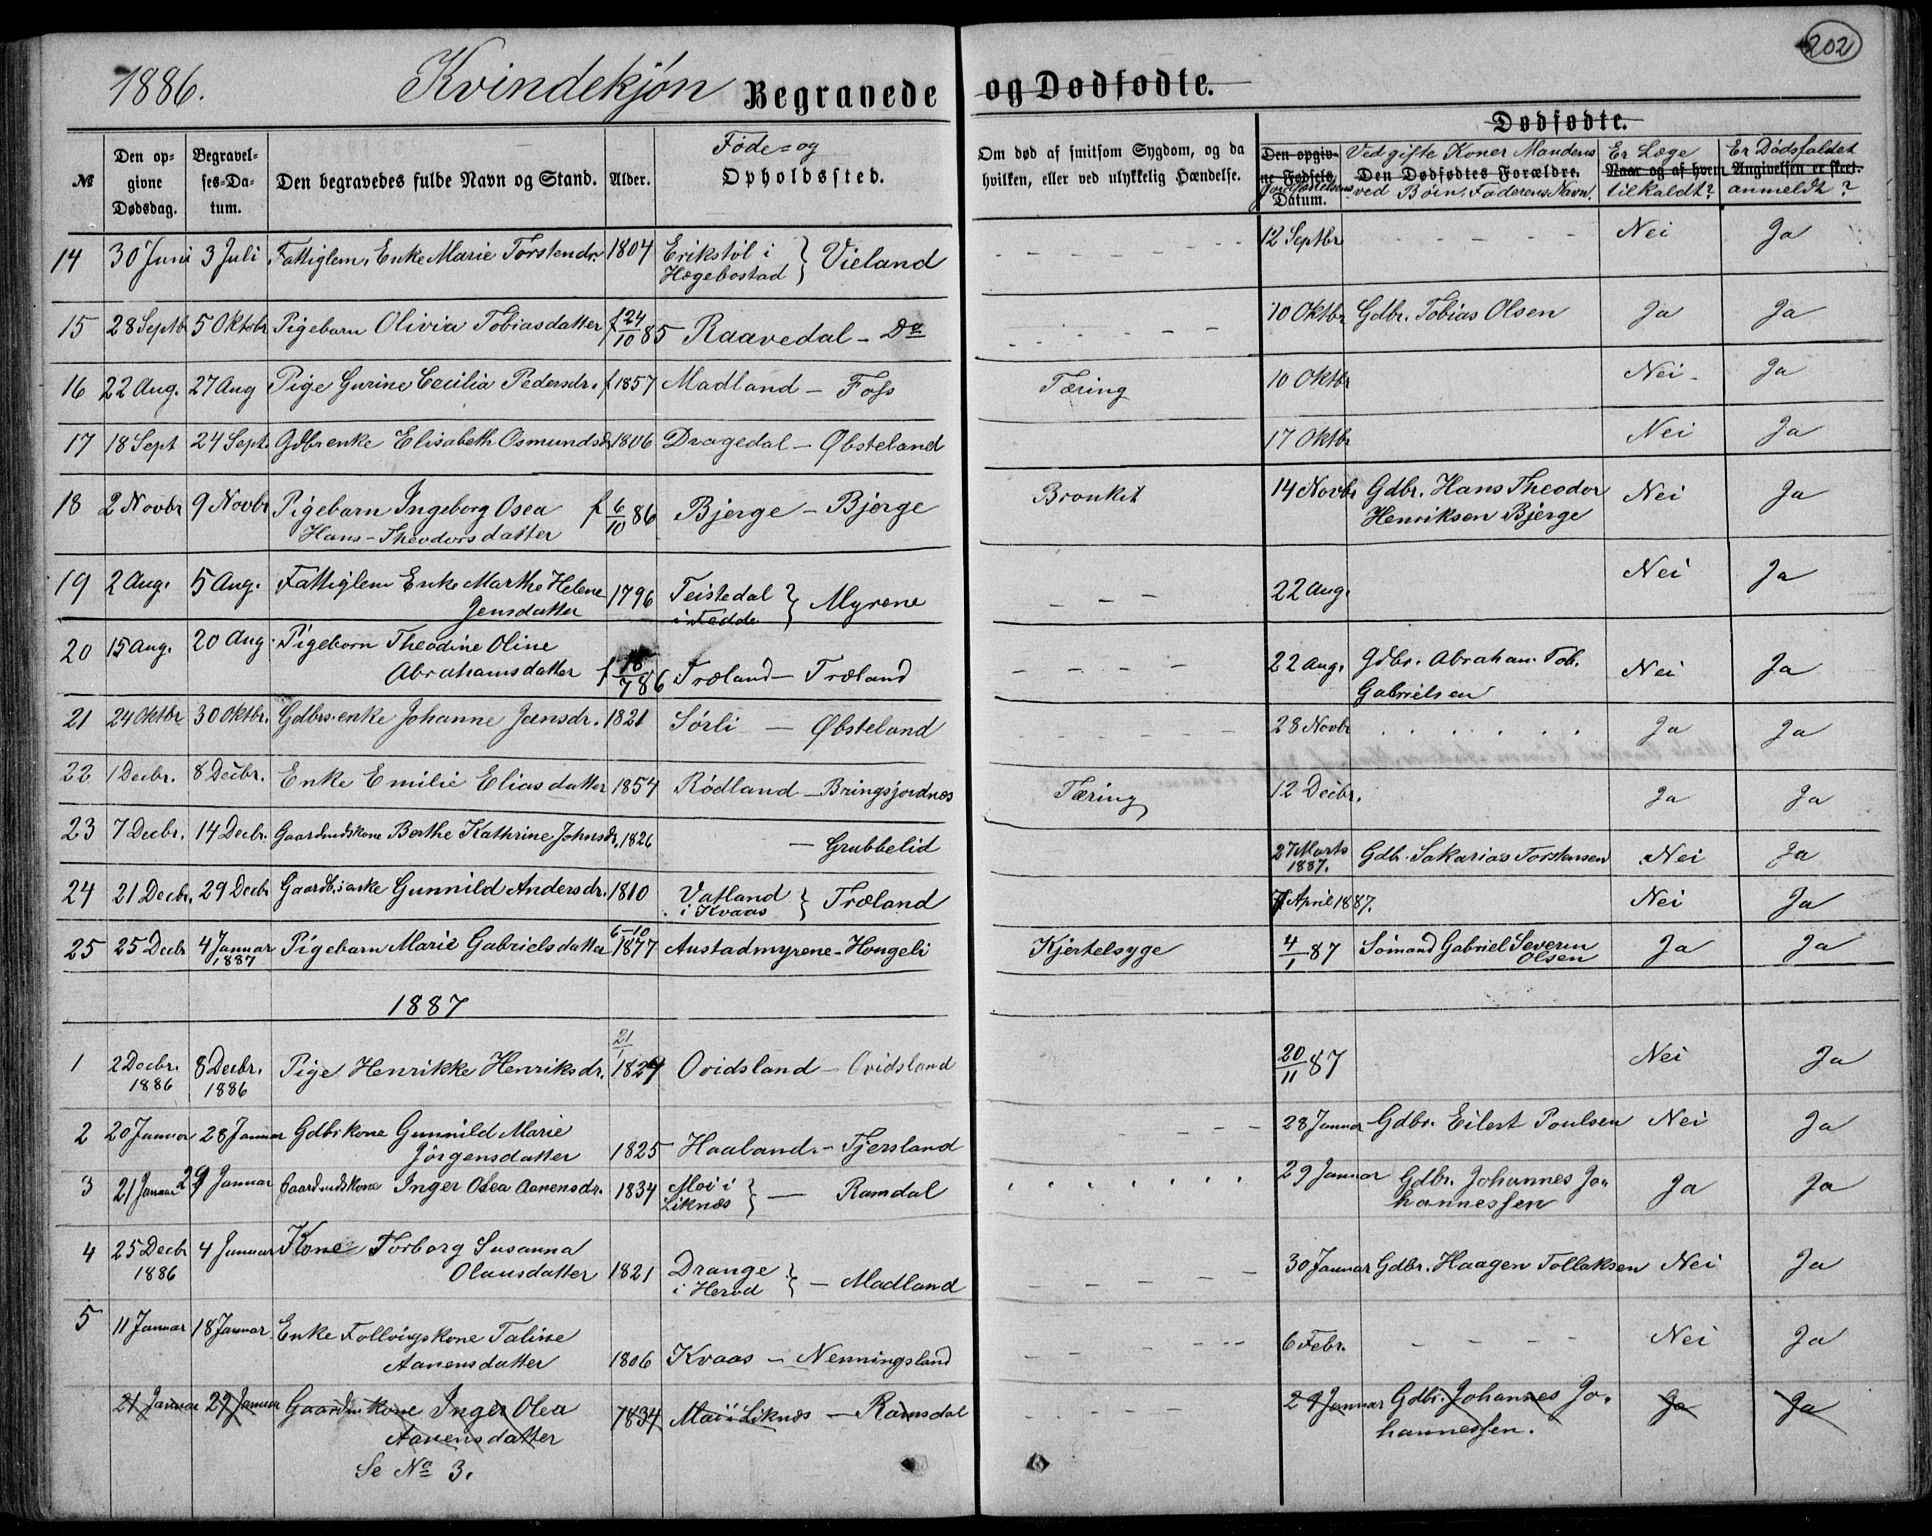 202
1886. Kvindekjøn Begravede og Dødfødte.
Dødfødte.
№ Den opgivne Dødsdag. Begravelses-Datum. Den begravedes fulde Navn og Stand. Alder. Føde- og Opholdssted. Om død af smitsom Sygdom, og da hvilken, eller ved ulykkelig Hændelse. Den opgivne Fødsels Jordfæstelsens Datum. Ved gifte Koner Mandens Den Dødfødtes Forældre. ved Børn, Faderens Navn. Er Læge Naar og af hvem tilkaldt? Er Dødsfaldet Angivelsen er skeet. anmeldt?
14 30 Juni 3 Juli Fattiglem, Enke Marie Torstendr. 1804 Erikstøl i Hægebostad } Vieland - - - - - 12 Septbr - - - - - Nei Ja
15 28 Septb 5 Oktobr Pigebarn Olivia Tobiasdatter f 24/10 85 Raavedal - Do - - - - - 10 Oktbr Gdbr. Tobias Olsen Ja Ja
16 22 Aug. 27 Aug Pige Gurine Cecilia Pedersdr. f 1857 Madland - Foss Tæring 10 Oktbr Nei - Ja
17 18 Sept 24 Sept. Gdbr enke Elisabeth Osmundsd. 1806 Dragedal - Øbsteland 17 Oktbr Nei Ja
18 2 Novbr 9 Novbr Pigebarn Ingeborg Osea f 6/10 86 Bjerge - Bjerge Bronkit 14 Novbr Gdbr. Hans Theodor Nei Ja
Hans-Theodorsdatter Henriksen Bjerge
19 2 Aug. 5 Aug. Fattiglem Enke Marthe Helene 1796 Teistedal i Fedde } Myrene - - - 22 Aug. Nei Ja
Jensdatter
20 15 Aug. 20 Aug. Pigebarn Theodine Oline
Abrahamsdatter f /7 86 Træland - Træland - - - - 22 Aug. Gdbr. Abraham Tob. Gabrielsen Nei Ja
21 24 Oktbr 30 Oktbr. Gdbrs. enke Johanne Jansdr. 1821 Sørli - Øbsteland 28 Novbr . . . . . . Ja Ja
22 1 Decbr. 8 Decbr. Enke Emilie Eliasdatter 1854 Rødland - Bringsjordnes Tæring 12 Decbr. Ja Ja
23 7 Decbr. 14 Decbr. Gaardmdskone Berthe Kathrine Johnsdr. 1826 - Grubbelid 27 Marts 1887. Gdbr. Sakarias Torstensen Nei Ja
24 21 Decbr. 29 Decbr Gaardb. enke Gunnild Andersdr. 1810 Vatland i Kvaas } Træland 7 April 1887. Nei Ja
25 25 Decbr 4 Januar 1887 Pigebarn Marie Gabrielsdatter 6-10 1877 Austadmyrene - Hongeli Kjertelsyge 4/1 87 Sømand Gabriel Severin Olsen Ja Ja
1887
1 2 Decbr. 1886 8 Decbr. 1886 Pige Henrikke Henriksdr. 21/1 1824 Ovidsland - Ovidsland 20/11 87 Nei Ja
2 20 Januar 28 Januar Gdbrskone Gunnild Marie
Jørgensdatter 1825 Haaland - Tjersland - - - 28 Januar Gdbr. Eilert Poulsen Nei Ja
3 21 Januar 29 Januar Gaardmdskone Inger Olea Aanensdr. 1834 Moi i Liknæs } - Ramdal . . . . . . 29 Januar Gdbr. Johannes Johannessen Ja Ja
4 25 Decbr 1886 4 Januar Kone Torborg Susanna
Olausdatter 1821 Drange i Herod } - Madland - - - - - 30 Januar Gdbr. Haagen Tollaksen Nei Ja
5 11 Januar 18 Januar Enke Tollvigskone Taline
Aanensdatter 1806 Kvaas - Nenningsland - - - - - 6 Febr. - - - - Nei Ja
21 Januar 29 Januar Gaardm kone Inger Olea 1834 Moi i Liknæs - Ramsdal - - - - - 29 Januar Gdbr. Johannes Johannessen. Ja Ja
Aanensdatter
Se No 3.